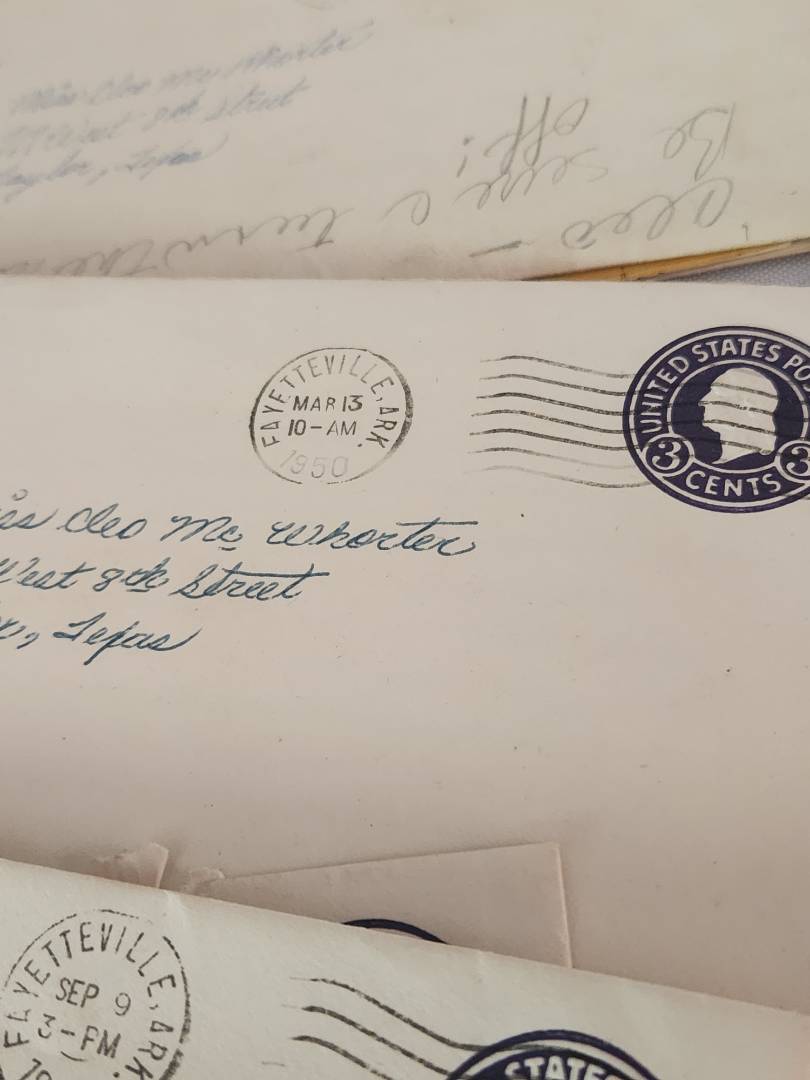 Miss Cleo Mc Whorter
West 8th Street
Taylor, Texas
Cleo –
Be sure & turn the
off!
FAYETTEVILLE, ARK.
MAR 13
10–AM
1950
UNITED STATES PO
3 CENTS 3
ss Cleo Mc Whorter
West 8th Street
r, Texas
FAYETTEVILLE, ARK.
SEP 9
3–PM
19
STATES